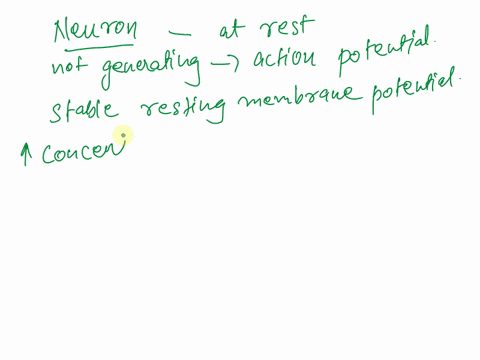 Neuron — at rest
not generating → action potential.
stable resting membrane potential.
↑ concen